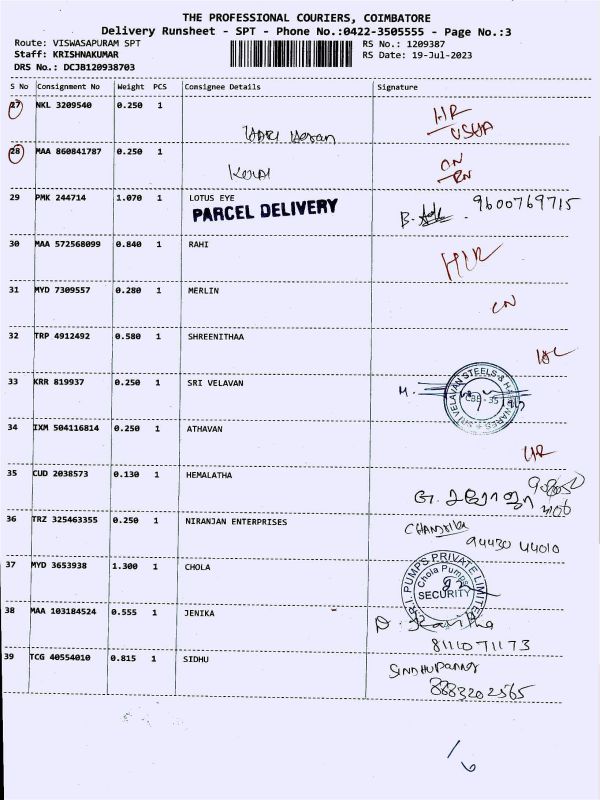 THE PROFESSIONAL COURIERS, COIMBATORE
Delivery Runsheet - SPT - Phone No.:0422-3505555 - Page No.:3
Route: VISWASAPURAM SPT RS No.: 1209387
Staff: KRISHNAKUMAR RS Date: 19-Jul-2023
DRS No.: DCJB120938703
S No Consignment No Weight PCS Consignee Details Signature
27 NKL 3209540 0.250 1
28 MAA 860841787 0.250 1
29 PMK 244714 1.070 1 LOTUS EYE 9600769715
PARCEL DELIVERY
30 MAA 572568099 0.840 1 RAHI
31 MYD 7309557 0.280 1 MERLIN
32 TRP 4912492 0.580 1 SHREENITHAA
33 KRR 819937 0.250 1 SRI VELAVAN
34 IXM 504116814 0.250 1 ATHAVAN
35 CUD 2038573 0.130 1 HEMALATHA
36 TRZ 325463355 0.250 1 NIRANJAN ENTERPRISES
94430 44010
37 MYD 3653938 1.300 1 CHOLA
Chola Pumps
SECURITY
38 MAA 103184524 0.555 1 JENIKA
8111071173
39 TCG 40554010 0.815 1 SIDHU
8883202565